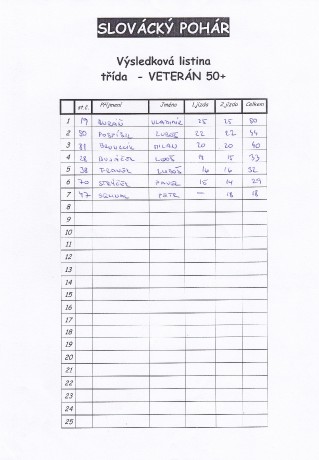 SLOVÁCKÝ POHÁR
Výsledková listina
třída - VETERÁN 50+
st.č. Příjmení Jméno 1.jízda 2.jízda Celkem
1 19 VLADIMÍR 25 25 50
2 50 POSPÍŠIL LUBOŠ 22 22 44
3 MILAN 20 20 40
4 28 15 33
5 38 LUBOŠ 16 16 32
6 70 PAVEL 15 14 29
7 47 PETR — 18 18
8
9
10
11
12
13
14
15
16
17
18
19
20
21
22
23
24
25